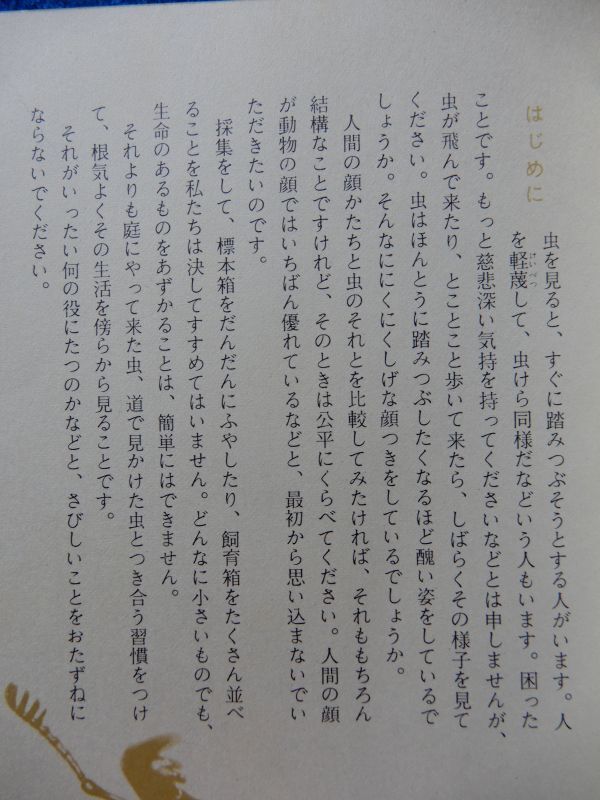 はじめに
虫を見ると、すぐに踏みつぶそうとする人がいます。人
を軽蔑して、虫けら同様だなどいう人もいます。困った
ことです。もっと慈悲深い気持を持ってくださいなどとは申しませんが、
虫が飛んで来たり、とことこ歩いて来たら、しばらくその様子を見て
ください。虫はほんとうに踏みつぶしたくなるほど醜い姿をしているで
しょうか。そんなににくにくしげな顔つきをしているでしょうか。
人間の顔かたちと虫のそれとを比較してみたければ、それももちろん
結構なことですけれど、そのときは公平にくらべてください。人間の顔
が動物の顔ではいちばん優れているなどと、最初から思い込まないでい
ただきたいのです。
採集をして、標本箱をだんだんにふやしたり、飼育箱をたくさん並べ
ることを私たちは決してすすめてはいません。どんなに小さいものでも、
生命のあるものをあずかることは、簡単にはできません。
それよりも庭にやって来た虫、道で見かけた虫とつき合う習慣をつけ
て、根気よくその生活を傍らから見ることです。
それがいったい何の役にたつのかなどと、さびしいことをおたずねに
ならないでください。